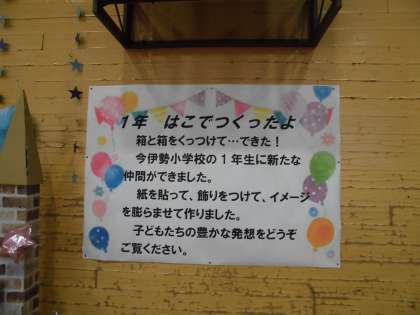 1年　はこでつくったよ
箱と箱をくっつけて…できた！
今伊勢小学校の1年生に新たな
仲間ができました。
紙を貼って、飾りをつけて、イメージ
を膨らませて作りました。
子どもたちの豊かな発想をどうぞ
ご覧ください。